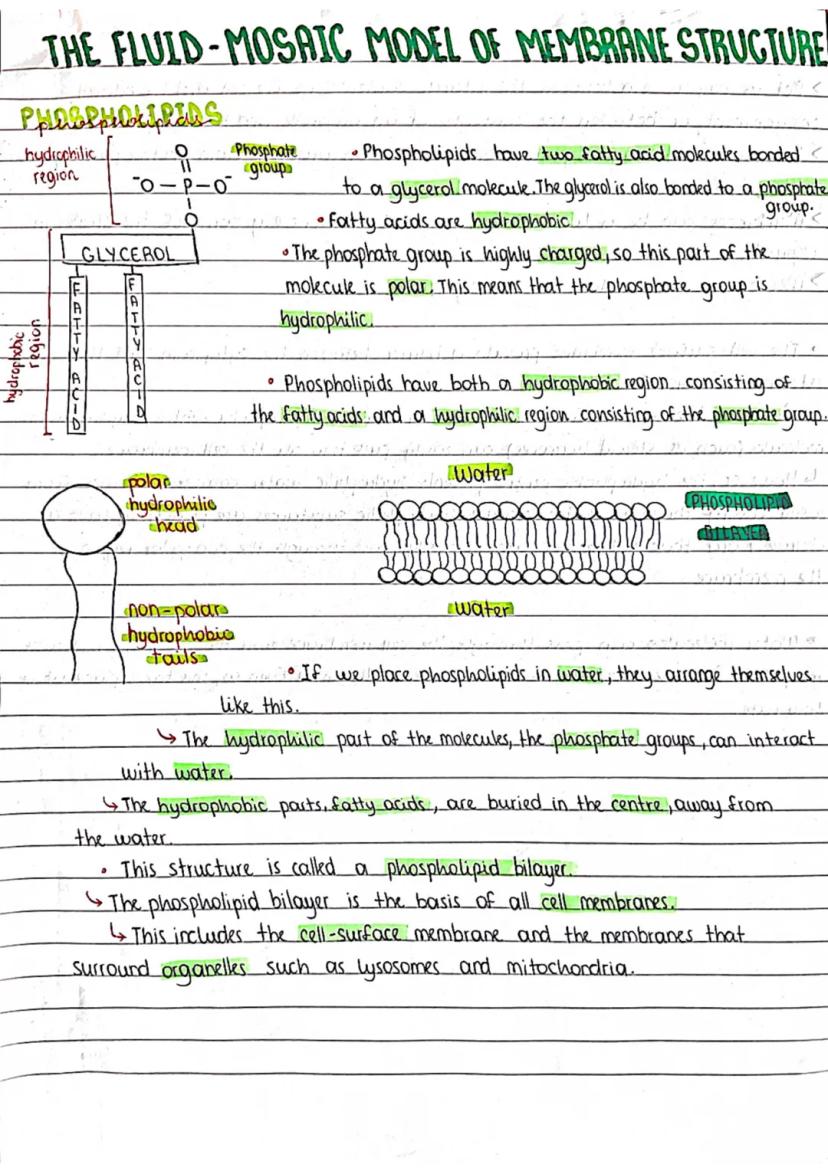 THE FLUID-MOSAIC MODEL OF MEMBRANE STRUCTURE
PHOSPHOLIPIDS
phospholipids
hydrophilic
region
O
⁻O – P – O⁻
O
Phosphate
group
GLYCEROL
FATTY ACID
FATTY ACID
hydrophobic
region
• Phospholipids have two fatty acid molecules bonded
to a glycerol molecule. The glycerol is also bonded to a phosphate
group.
• Fatty acids are hydrophobic
• The phosphate group is highly charged, so this part of the
molecule is polar. This means that the phosphate group is
hydrophilic.
• Phospholipids have both a hydrophobic region consisting of
the fatty acids and a hydrophilic region consisting of the phosphate group.
polar
hydrophilic
head
non-polar
hydrophobic
tails
Water
PHOSPHOLIPID
BILAYER
Water
• If we place phospholipids in water, they arrange themselves
like this.
↳ The hydrophilic part of the molecules, the phosphate groups, can interact
with water.
↳ The hydrophobic parts, fatty acids, are buried in the centre, away from
the water.
• This structure is called a phospholipid bilayer.
↳ The phospholipid bilayer is the basis of all cell membranes.
↳ This includes the cell-surface membrane and the membranes that
surround organelles such as lysosomes and mitochondria.